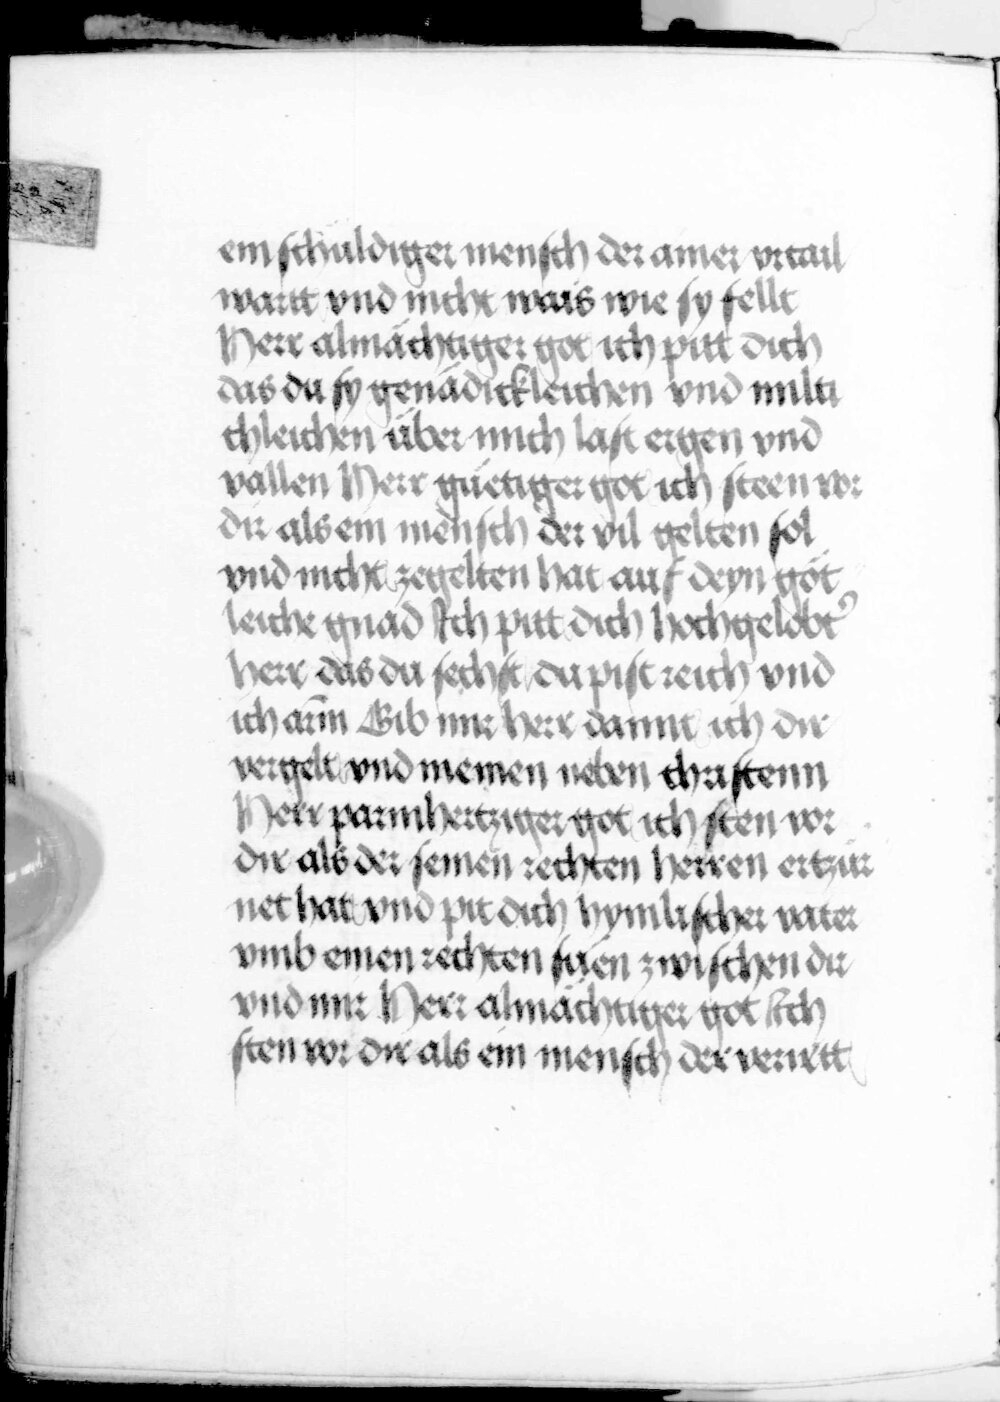 ein schuldiger mensch der ainer vrtail
wartt vnd nicht wais wie sy fellt
Herr almächtiger got ich pitt dich
das du sy genädickleichen vnd milti
chleichen über mich last ergen vnd
vallen Herr güetiger got ich steen vor
dir als ein mensch der vil gelten sol
vnd nicht zegelten hat auf deyn göt
leiche gnad Ich pitt dich hochgelobt᾽
herr das du sechst du pist reich vnd
ich arm Gib mir herr damit ich dir
vergelt vnd meinen neben christenn
Herr parmhertziger got ich sten vor
dir als der seinen rechten herren ertzür
net hat vnd pit dich hymlischer vater
vmb einen rechten süen zwischen dir
vnd mir Herr almächtiger got Ich
sten vor dir als ein mensch der verirtt